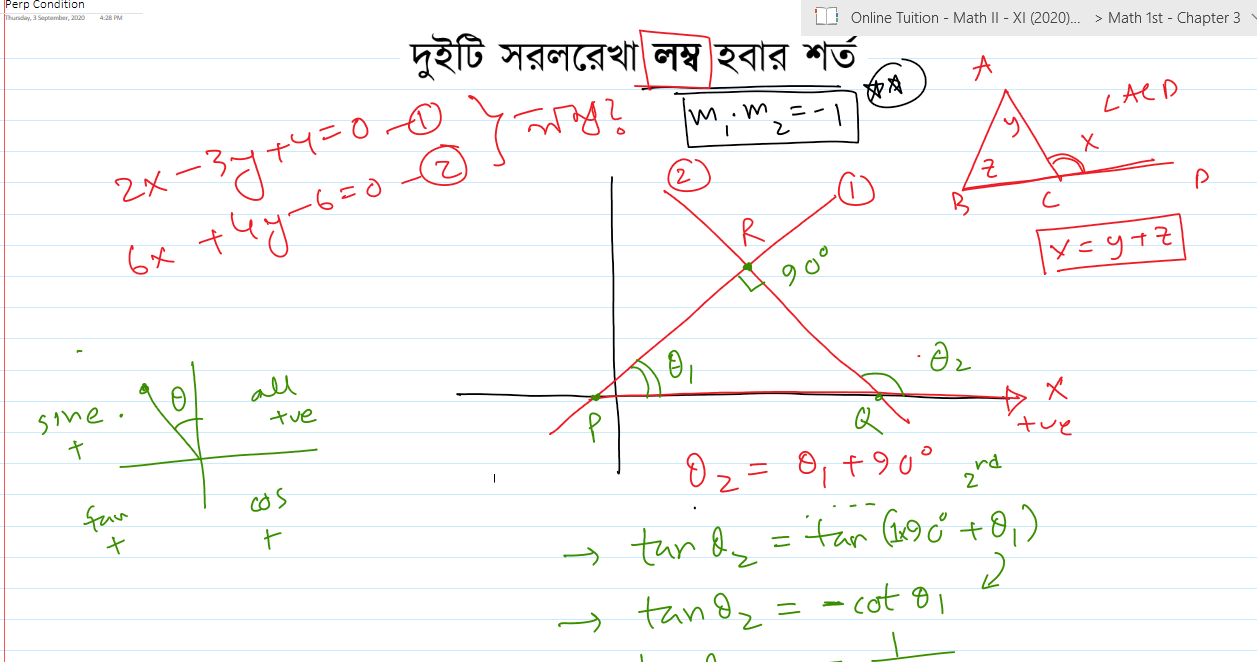 Perp Condition
Thursday, 3 September, 2020 4:28 PM
Online Tuition - Math II - XI (2020)... > Math 1st - Chapter 3
দুইটি সরলরেখা লম্ব হবার শর্ত
m₁.m₂ = -1
2x - 3y + 4 = 0 - ①
6x + 4y - 6 = 0 - ②
} লম্ব?
A
∠ACD
y
x
z
B
C
D
x = y + z
②
①
R
90°
θ₁
θ₂
P
Q
X
+ve
θ
all
+ve
sine
+
tan
+
cos
+
θ₂ = θ₁ + 90°
2nd
→ tan θ₂ = tan (1×90° + θ₁)
→ tan θ₂ = - cot θ₁
1